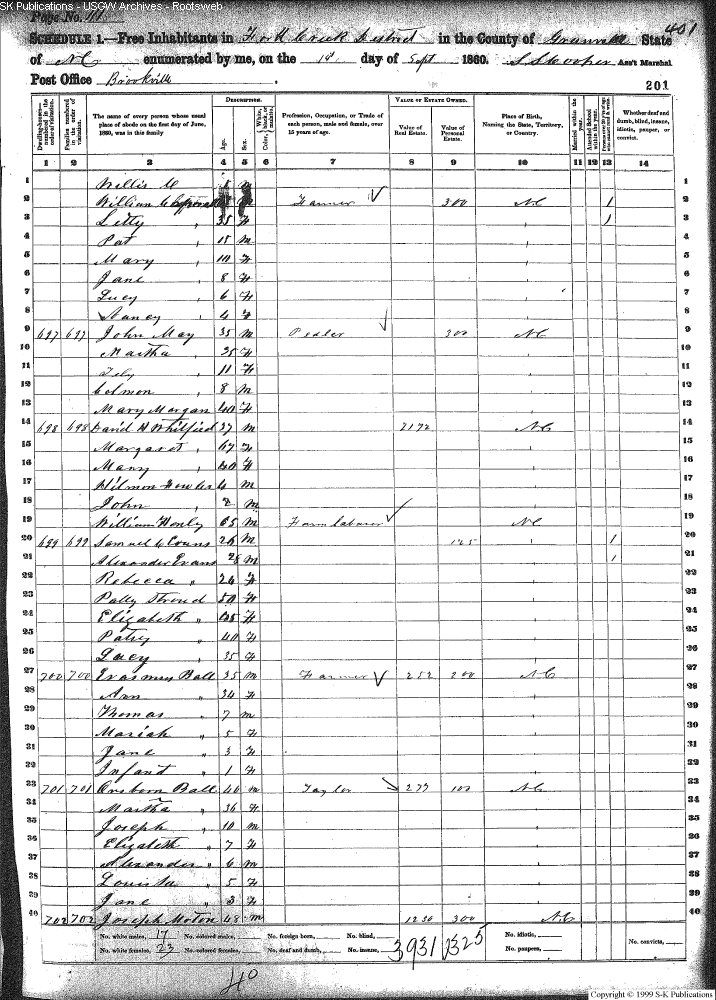 SK Publications - USGW Archives - Rootsweb
Page No. 111
401
SCHEDULE 1.—Free Inhabitants in Fork Creek District in the County of Granville State
of NC enumerated by me, on the 1st day of Sept 1860. Ass't Marshal
Post Office Brookville
201
DESCRIPTION.
VALUE OF ESTATE OWNED.
Dwelling-houses—numbered in the order of visitation.
Families numbered in the order of visitation.
The name of every person whose usual place of abode on the first day of June, 1860, was in this family
Age.
Sex.
Color, White, black, or mulatto.
Profession, Occupation, or Trade of each person, male and female, over 15 years of age.
Value of Real Estate.
Value of Personal Estate.
Place of Birth, Naming the State, Territory, or Country.
Married within the year.
Attended School within the year.
Whether deaf and dumb, blind, insane, idiotic, pauper, or convict.
1 2 3 4 5 6 7 8 9 10 11 12 13 14
1 Willis C m 1
2 William Farmer 300 NC 1 2
3 Letty " 35 F 1 3
4 Pat " 15 m 4
5 Mary " 10 F 5
6 Jane " 8 F 6
7 Lucy " 6 F 7
8 Nancy " 4 F 8
9 697 697 John May 35 m Pedler 300 NC 9
10 Martha " 25 F 10
11 " 11 F 11
12 Colmon " 8 m 12
13 Mary Morgan 40 F 13
14 698 698 David H Whitfield 37 m 2172 NC 14
15 Margaret " 67 F 15
16 Mary " 40 F 16
17 Hilmon 4 m 17
18 John " 2 m 18
19 William Henly 65 m Farm laborer NC 19
20 699 699 Samuel C Evans 26 m 125 1 20
21 Alexander Evans 28 m 1 21
22 Rebecca " 24 F 22
23 Patty Stroud 50 F 23
24 Elizabeth " F 24
25 Patsy " 40 F 25
26 Lucy " 35 F 26
27 700 700 Erasmus Ball 35 m Farmer 252 200 NC 27
28 Ann " 34 F 28
29 Thomas " 7 m 29
30 Mariah " 5 F 30
31 Jane " 3 F 31
32 Infant " 1 F 32
33 701 701 Orsborn Ball 40 m Taylor 277 100 NC 33
34 Martha " 36 F 34
35 Joseph " 10 m 35
36 Elizabeth " 7 F 36
37 Alexander " 6 m 37
38 Louisa " 5 F 38
39 Jane " 3 F 39
40 702 702 Joseph Moton 48 m 1230 300 NC 40
No. white males, 17 No. colored males, No. foreign born, No. blind, 3931 1325 No. idiotic, No. convicts,
No. white females, 23 No. colored females, No. deaf and dumb, No. insane, No. paupers,
40
Copyright © 1999 S-K Publications